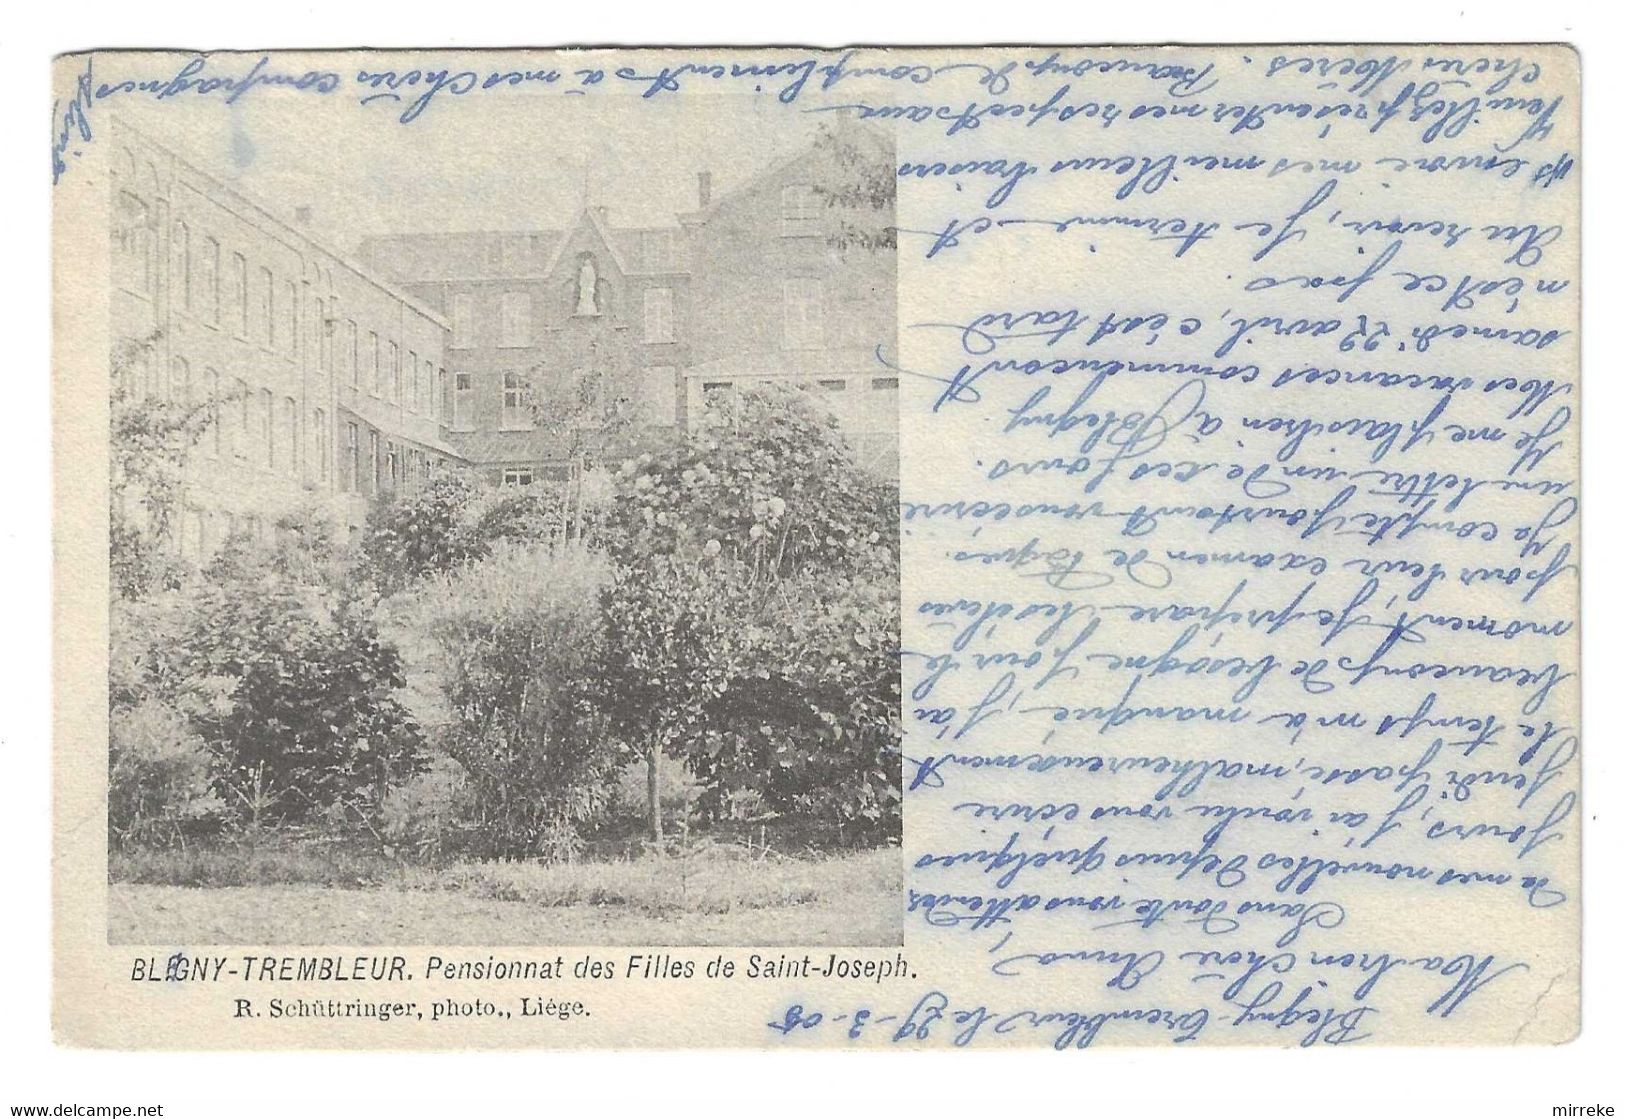 BLÉGNY-TREMBLEUR. Pensionnat des Filles de Saint-Joseph.
R. Schüttringer, photo., Liége.
Blegny-Trembleur le 29-3-05
Ma bien Chère Anna,
Sans doute vous attendez
de mes nouvelles depuis quelques
jours, j'ai voulu vous écrire
jeudi passé, malheureusement
le temps m'a manqué, j'ai
beaucoup de besogne pour le
moment, je prépare les élèves
pour leur examen de Pâques.
Je compte pourtant vous écrire
une lettre un de ces jours.
Je me plais bien à Blegny.
Mes vacances commencent
samedi 22 avril, c'est tard
n'est ce pas.
Au revoir, je termine et
vs envoie mes meilleurs baisers
Veuillez présenter mes respects aux
Chères Mères. Beaucoup de compliments à mes Chères compagnes
mirreke